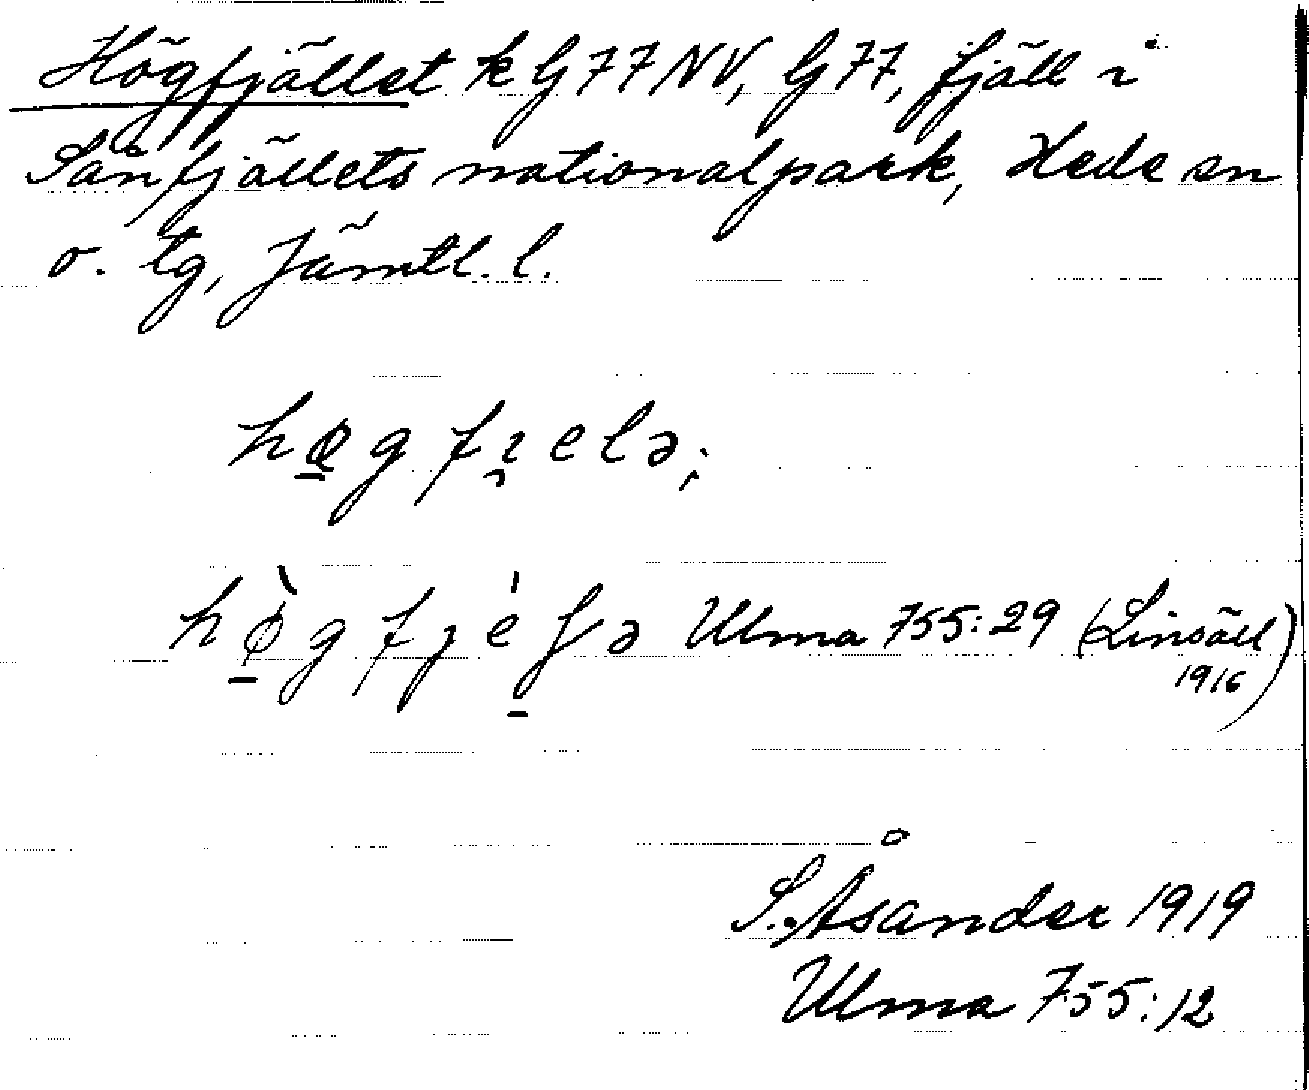 Högfjället k G77NV, G77, fjäll i
Sånfjällets nationalpark, Hede sn
o. tg, Jämtl. l.
hø̠gfı̯elə;
hø̠̀gfȷé̠ʃə Ulma 755:29 (Linsäll
1916)
S. Åsander 1919
Ulma 755:12